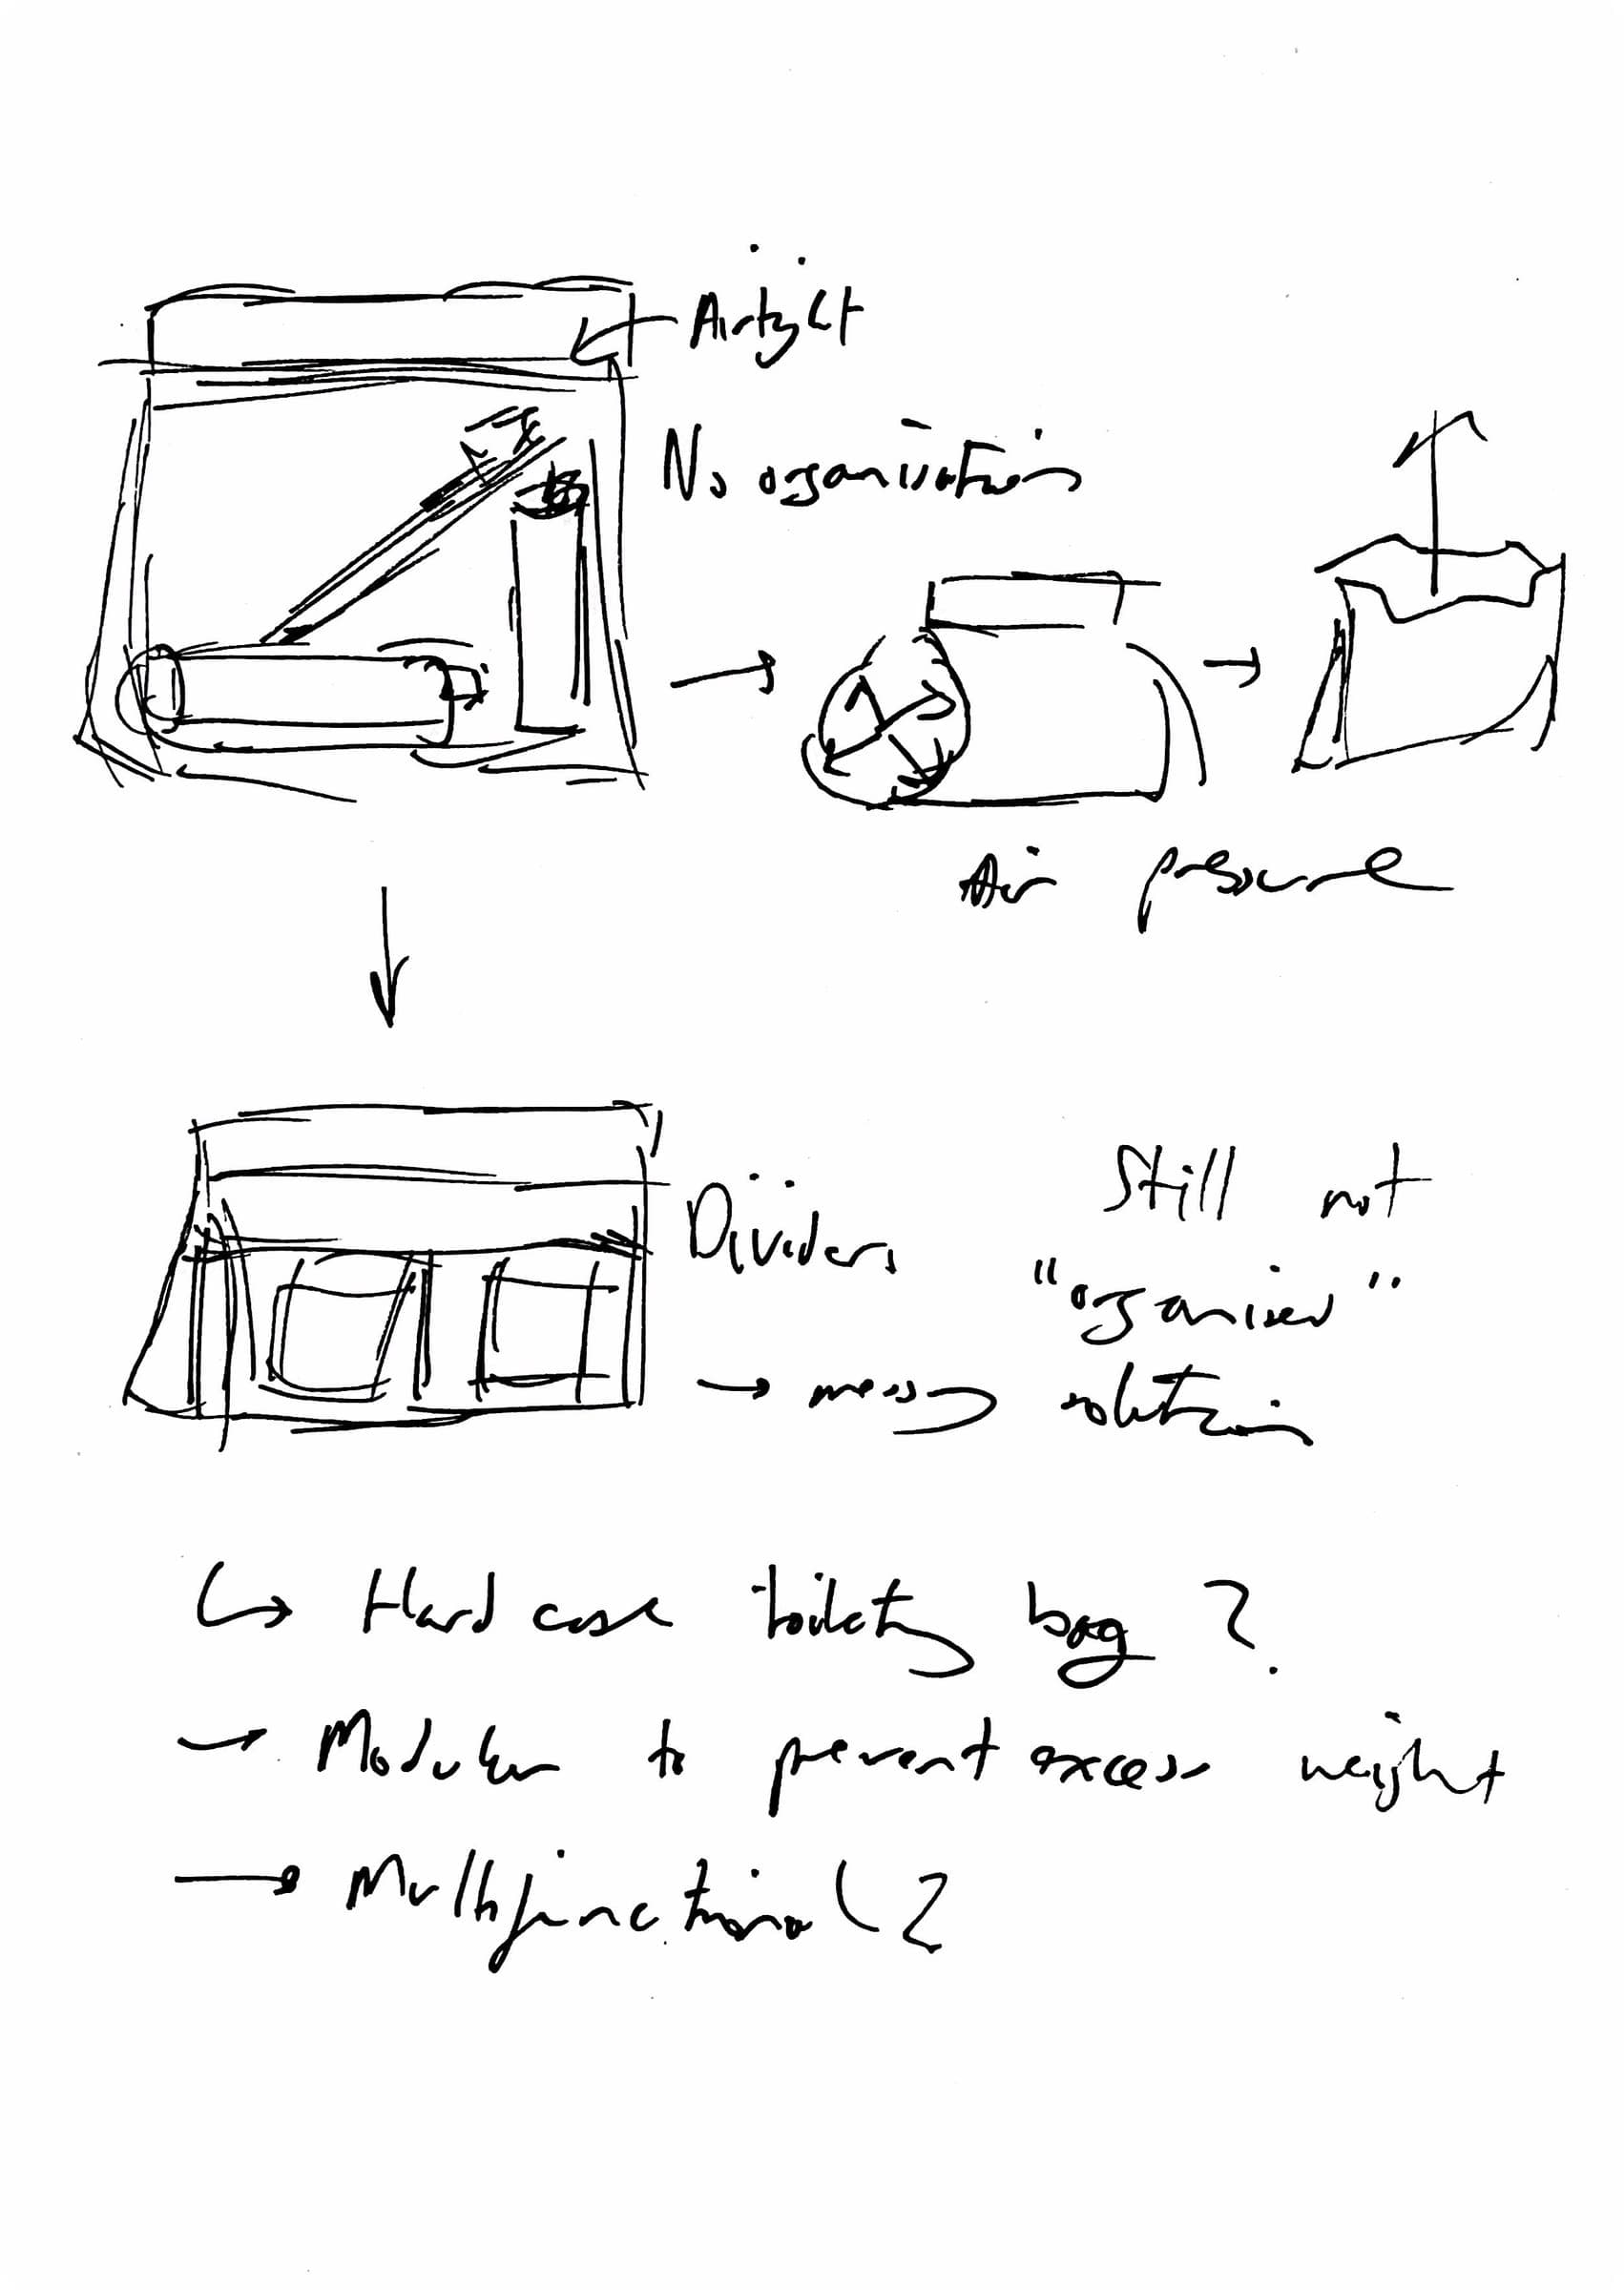 Airtight
No organisation
Air pressure
Dividers
Still not
"organised"
→ messy solution
↳ Hard case toiletry bag ?
→ Modular to prevent excess weight
→ Multifunctional ?